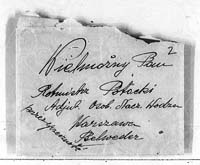 Wielmożny Pan
2
Rotmistrz Potocki
Adjut. Osob. Nacz. Wodza
Warszawa
Belweder